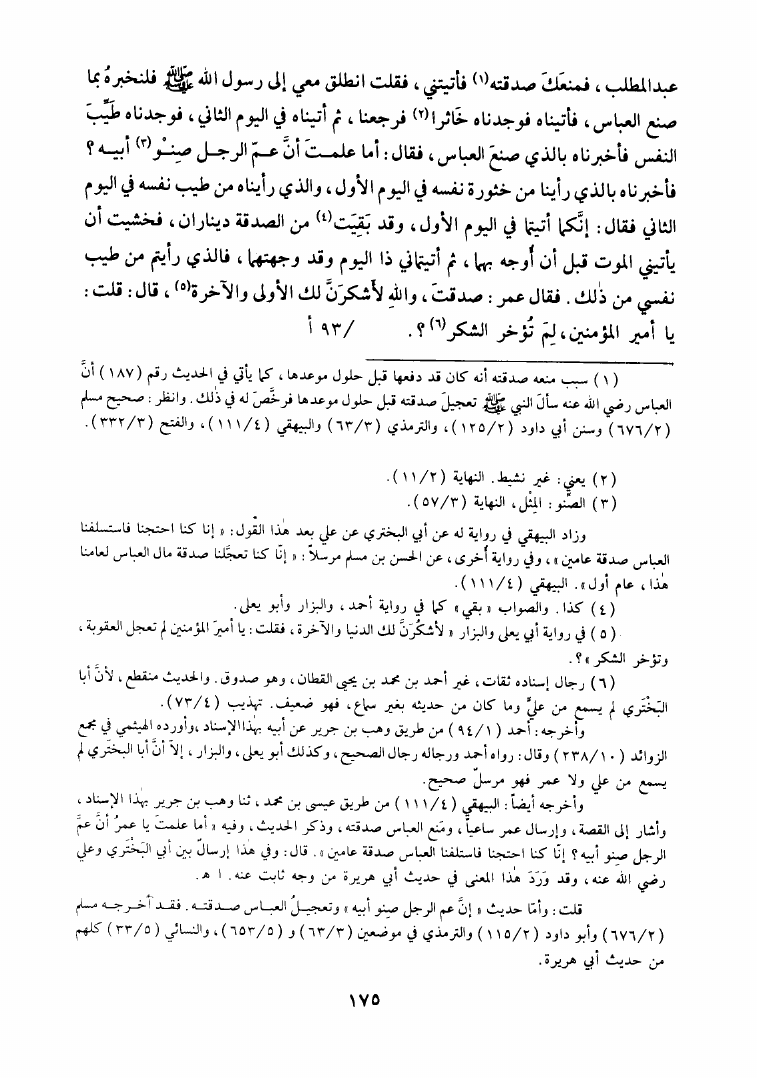 عبدالمطلب ، فمنعَكَ صدقته(١) فأتيتني ، فقلت انطلق معي إلى رسول الله ﷺ فلنخبرهُ بما
صنع العباس ، فأتيناه فوجدناه خَاثرا(٢) فرجعنا ، ثم أتيناه في اليوم الثاني ، فوجدناه طَيِّبَ
النفس فأخبرناه بالذي صنعَ العباس ، فقال : أما علمتَ أنَّ عمّ الرجل صِنْو(٣) أبيه ؟
فأخبرناه بالذي رأينا من خثورة نفسه في اليوم الأول ، والذي رأيناه من طيب نفسه في اليوم
الثاني فقال : إنَّكما أتيتما في اليوم الأول ، وقد بَقِيَت(٤) من الصدقة ديناران ، فخشيت أن
يأتيني الموت قبل أن أُوجه بهما ، ثم أتيتماني ذا اليوم وقد وجهتهما ، فالذي رأيتم من طيب
نفسي من ذٰلك . فقال عمر : صدقتَ ، واللهِ لأشكرَنَّ لك الأولى والآخرة(٥) ، قال : قلت :
يا أمير المؤمنين ، لِمَ تُؤخر الشكر(٦) ؟ . /٩٣ أ
(١) سبب منعه صدقته أنه كان قد دفعها قبل حلول موعدها ، كما يأتي في الحديث رقم (١٨٧) أنَّ
العباس رضي الله عنه سألَ النبي ﷺ تعجيلَ صدقته قبل حلول موعدها فرخَّصَ له في ذلك . وانظر : صحيح مسلم
(٦٧٦/٢) وسنن أبي داود (١٢٥/٢) ، والترمذي (٦٣/٣) والبيهقي (١١١/٤) ، والفتح (٣٣٢/٣) .
(٢) يعني : غير نشيط . النهاية (١١/٢) .
(٣) الصِّنو : المِثْل ، النهاية (٥٧/٣) .
وزاد البيهقي في رواية له عن أبي البختري عن علي بعد هٰذا القول : « إنا كنا احتجنا فاستسلفنا
العباس صدقة عامين » ، وفي رواية أُخرى ، عن الحسن بن مسلم مرسلاً : « إنّا كنا تعجَّلنا صدقة مال العباس لعامنا
هٰذا ، عام أول » . البيهقي (١١١/٤) .
(٤) كذا . والصواب « بقي » كما في رواية أحمد ، والبزار وأبو يعلى .
(٥) في رواية أبي يعلى والبزار « لأشكُرَنَّ لك الدنيا والآخرة ، فقلت : يا أميرَ المؤمنين لم تعجل العقوبة ،
وتؤخر الشكر » ؟ .
(٦) رجال إسناده ثقات ، غير أحمد بن محمد بن يحيى القطان ، وهو صدوق . والحديث منقطع ، لأنَّ أبا
البَخْتَري لم يسمع من عليّ وما كان من حديثه بغير سماع ، فهو ضعيف . تهذيب (٧٣/٤) .
وأخرجه : أحمد (٩٤/١) من طريق وهب بن جرير عن أبيه بهٰذا الإسناد ، وأورده الهيثمي في مجمع
الزوائد (٢٣٨/١٠) وقال : رواه أحمد ورجاله رجال الصحيح ، وكذلك أبو يعلى ، والبزار ، إلاّ أنَّ أبا البختَري لم
يسمع من علي ولا عمر فهو مرسلٌ صحيح .
وأخرجه أيضاً : البيهقي (١١١/٤) من طريق عيسى بن محمد ، ثنا وهب بن جرير بهٰذا الإسناد ،
وأشار إلى القصة ، وإرسال عمر ساعياً ، ومَنع العباس صدقته ، وذكر الحديث ، وفيه « أما علمتَ يا عمرُ أنَّ عمَّ
الرجل صِنو أبيه ؟ إنّا كنا احتجنا فاستلفنا العباس صدقة عامين » . قال : وفي هٰذا إرسالٌ بين أبي البَخْتَري وعلي
رضي الله عنه ، وقد وَرَدَ هٰذا المعنى في حديث أبي هريرة من وجه ثابت عنه . ا هـ .
قلت : وأمّا حديث « إنَّ عم الرجل صِنو أبيه » وتعجيلُ العباس صدقته . فقد أخرجه مسلم
(٦٧٦/٢) وأبو داود (١١٥/٢) والترمذي في موضعين (٦٣/٣) و (٦٥٣/٥) ، والنسائي (٣٣/٥) كلهم
من حديث أبي هريرة .
١٧٥